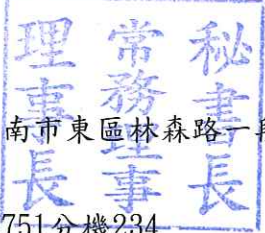 秘書長
常務理事
理事長
南市東區林森路一段
751分機234